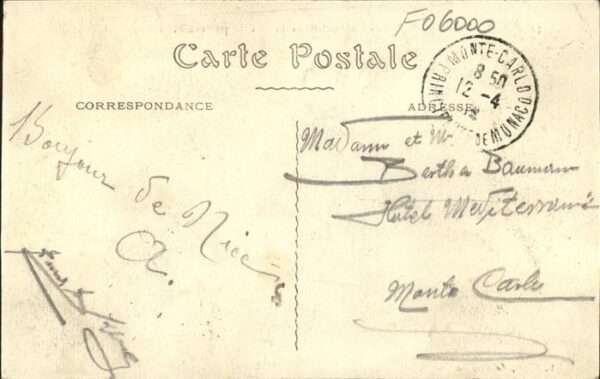 F06000
Carte Postale
MONTE-CARLO
PRINCIPAUTÉ DE MONACO
8 50
12 - 4
CORRESPONDANCE
ADRESSE
Bonjour
de Nice
A.
Madame et M.
Bertha Baumann
Hôtel Mediterrané
Monte Carlo